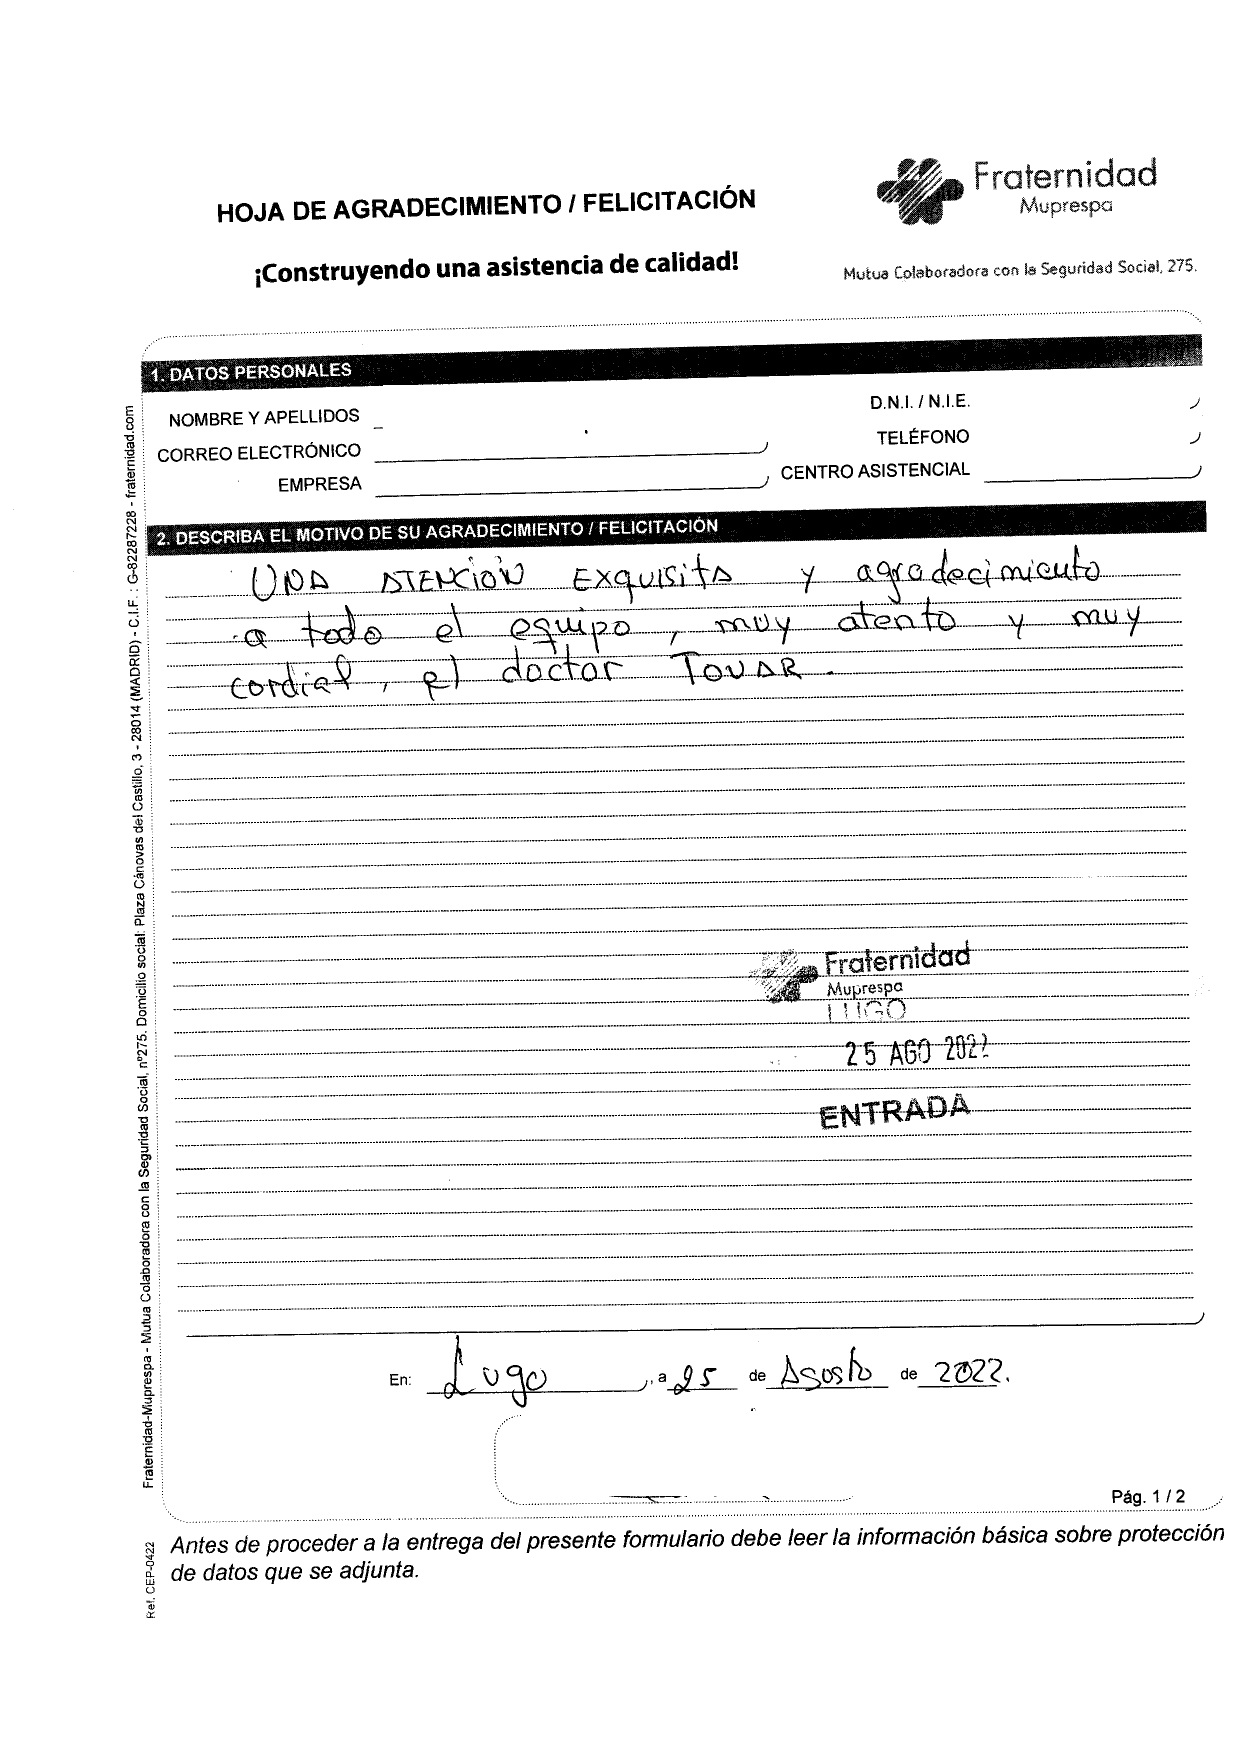 Fraternidad
Muprespa
HOJA DE AGRADECIMIENTO / FELICITACIÓN
¡Construyendo una asistencia de calidad!
Mutua Colaboradora con la Seguridad Social, 275.
1. DATOS PERSONALES
NOMBRE Y APELLIDOS
D.N.I. / N.I.E.
CORREO ELECTRÓNICO
TELÉFONO
EMPRESA
CENTRO ASISTENCIAL
2. DESCRIBA EL MOTIVO DE SU AGRADECIMIENTO / FELICITACIÓN
UNA ATENCIÓN Exquisita y agradecimiento
a todo el equipo, muy atento y muy
cordial, el doctor TOVAR.
Fraternidad
Muprespa
LUGO
25 AGO 2022
ENTRADA
En: Lugo, a 25 de Agosto de 2022.
Pág. 1 / 2
Antes de proceder a la entrega del presente formulario debe leer la información básica sobre protección
de datos que se adjunta.
Fraternidad-Muprespa - Mutua Colaboradora con la Seguridad Social, nº275. Domicilio social: Plaza Cánovas del Castillo, 3 - 28014 (MADRID) - C.I.F. : G-82287228 - fraternidad.com
Ref. CEP-0422